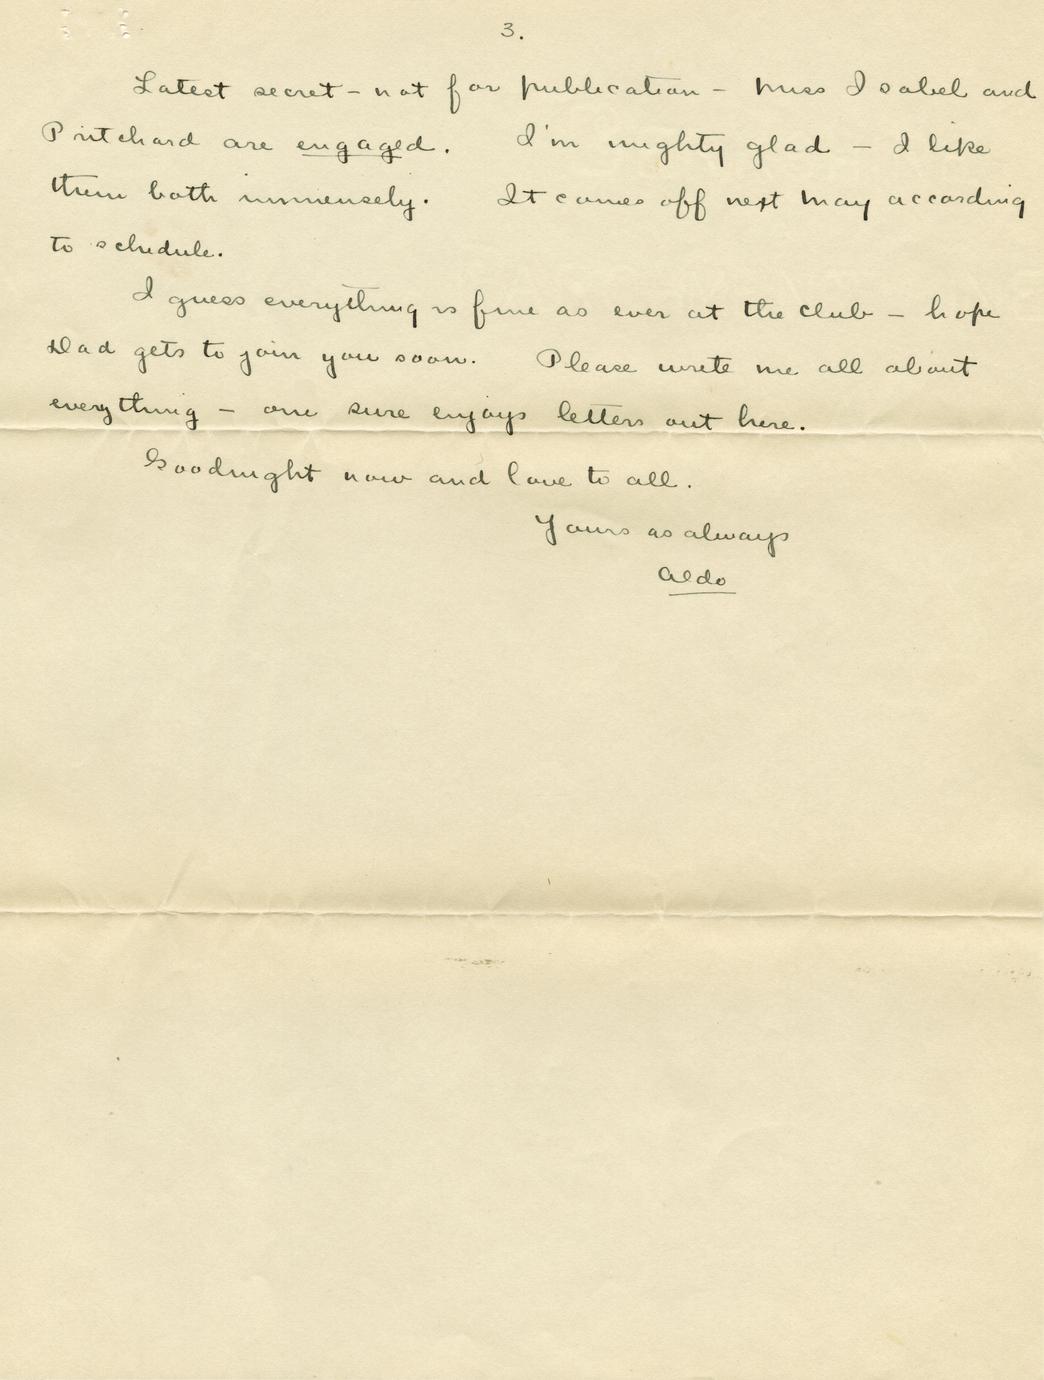 3.
Latest secret - not for publication - Miss Isabel and
Pritchard are engaged. I'm mighty glad - I like
them both immensely. It comes off next May according
to schedule.
I guess everything is fine as ever at the club - hope
Dad gets to join you soon. Please write me all about
everything - one sure enjoys letters out here.
Goodnight now and love to all.
Yours as always
Aldo